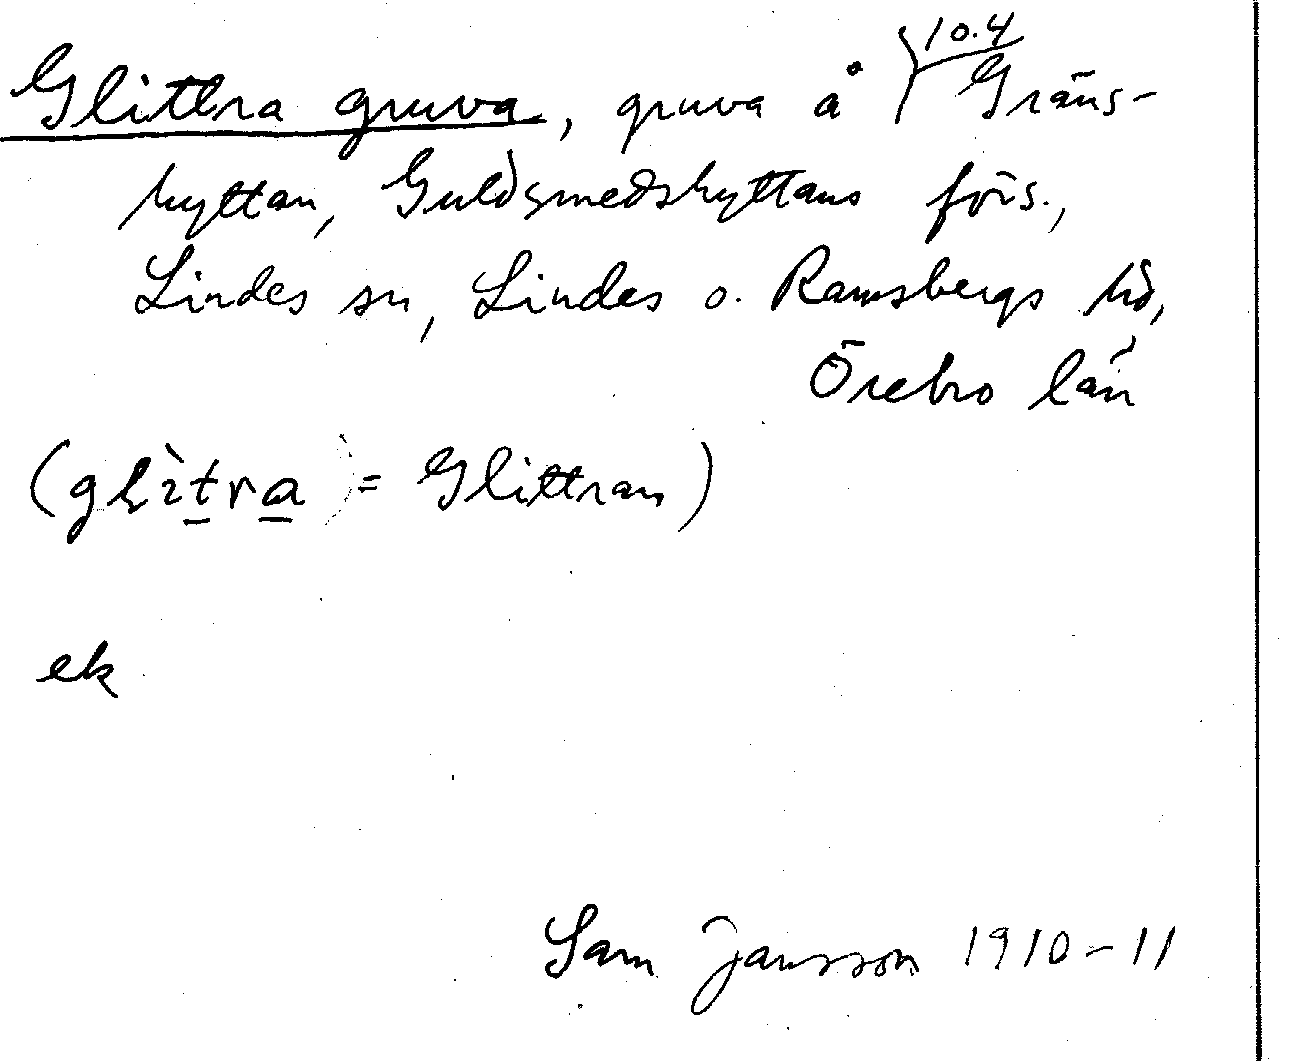 Glittra gruva, gruva å 10.4 Gräns-
hyttan, Guldsmedshyttans förs.,
Lindes sn, Lindes o. Ramsbergs hd,
Örebro län
(glìtra = Glittran)
ek
Sam Jansson 1910-11